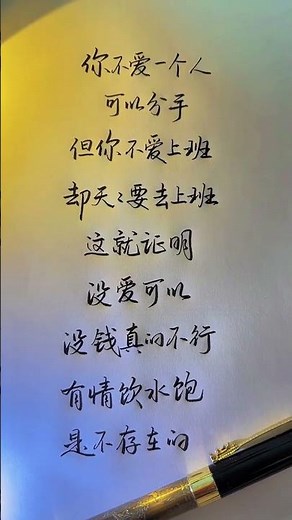 你不爱一个人
可以分手
但你不爱上班
却天天要去上班
这就证明
没爱可以
没钱真的不行
有情饮水饱
是不存在的